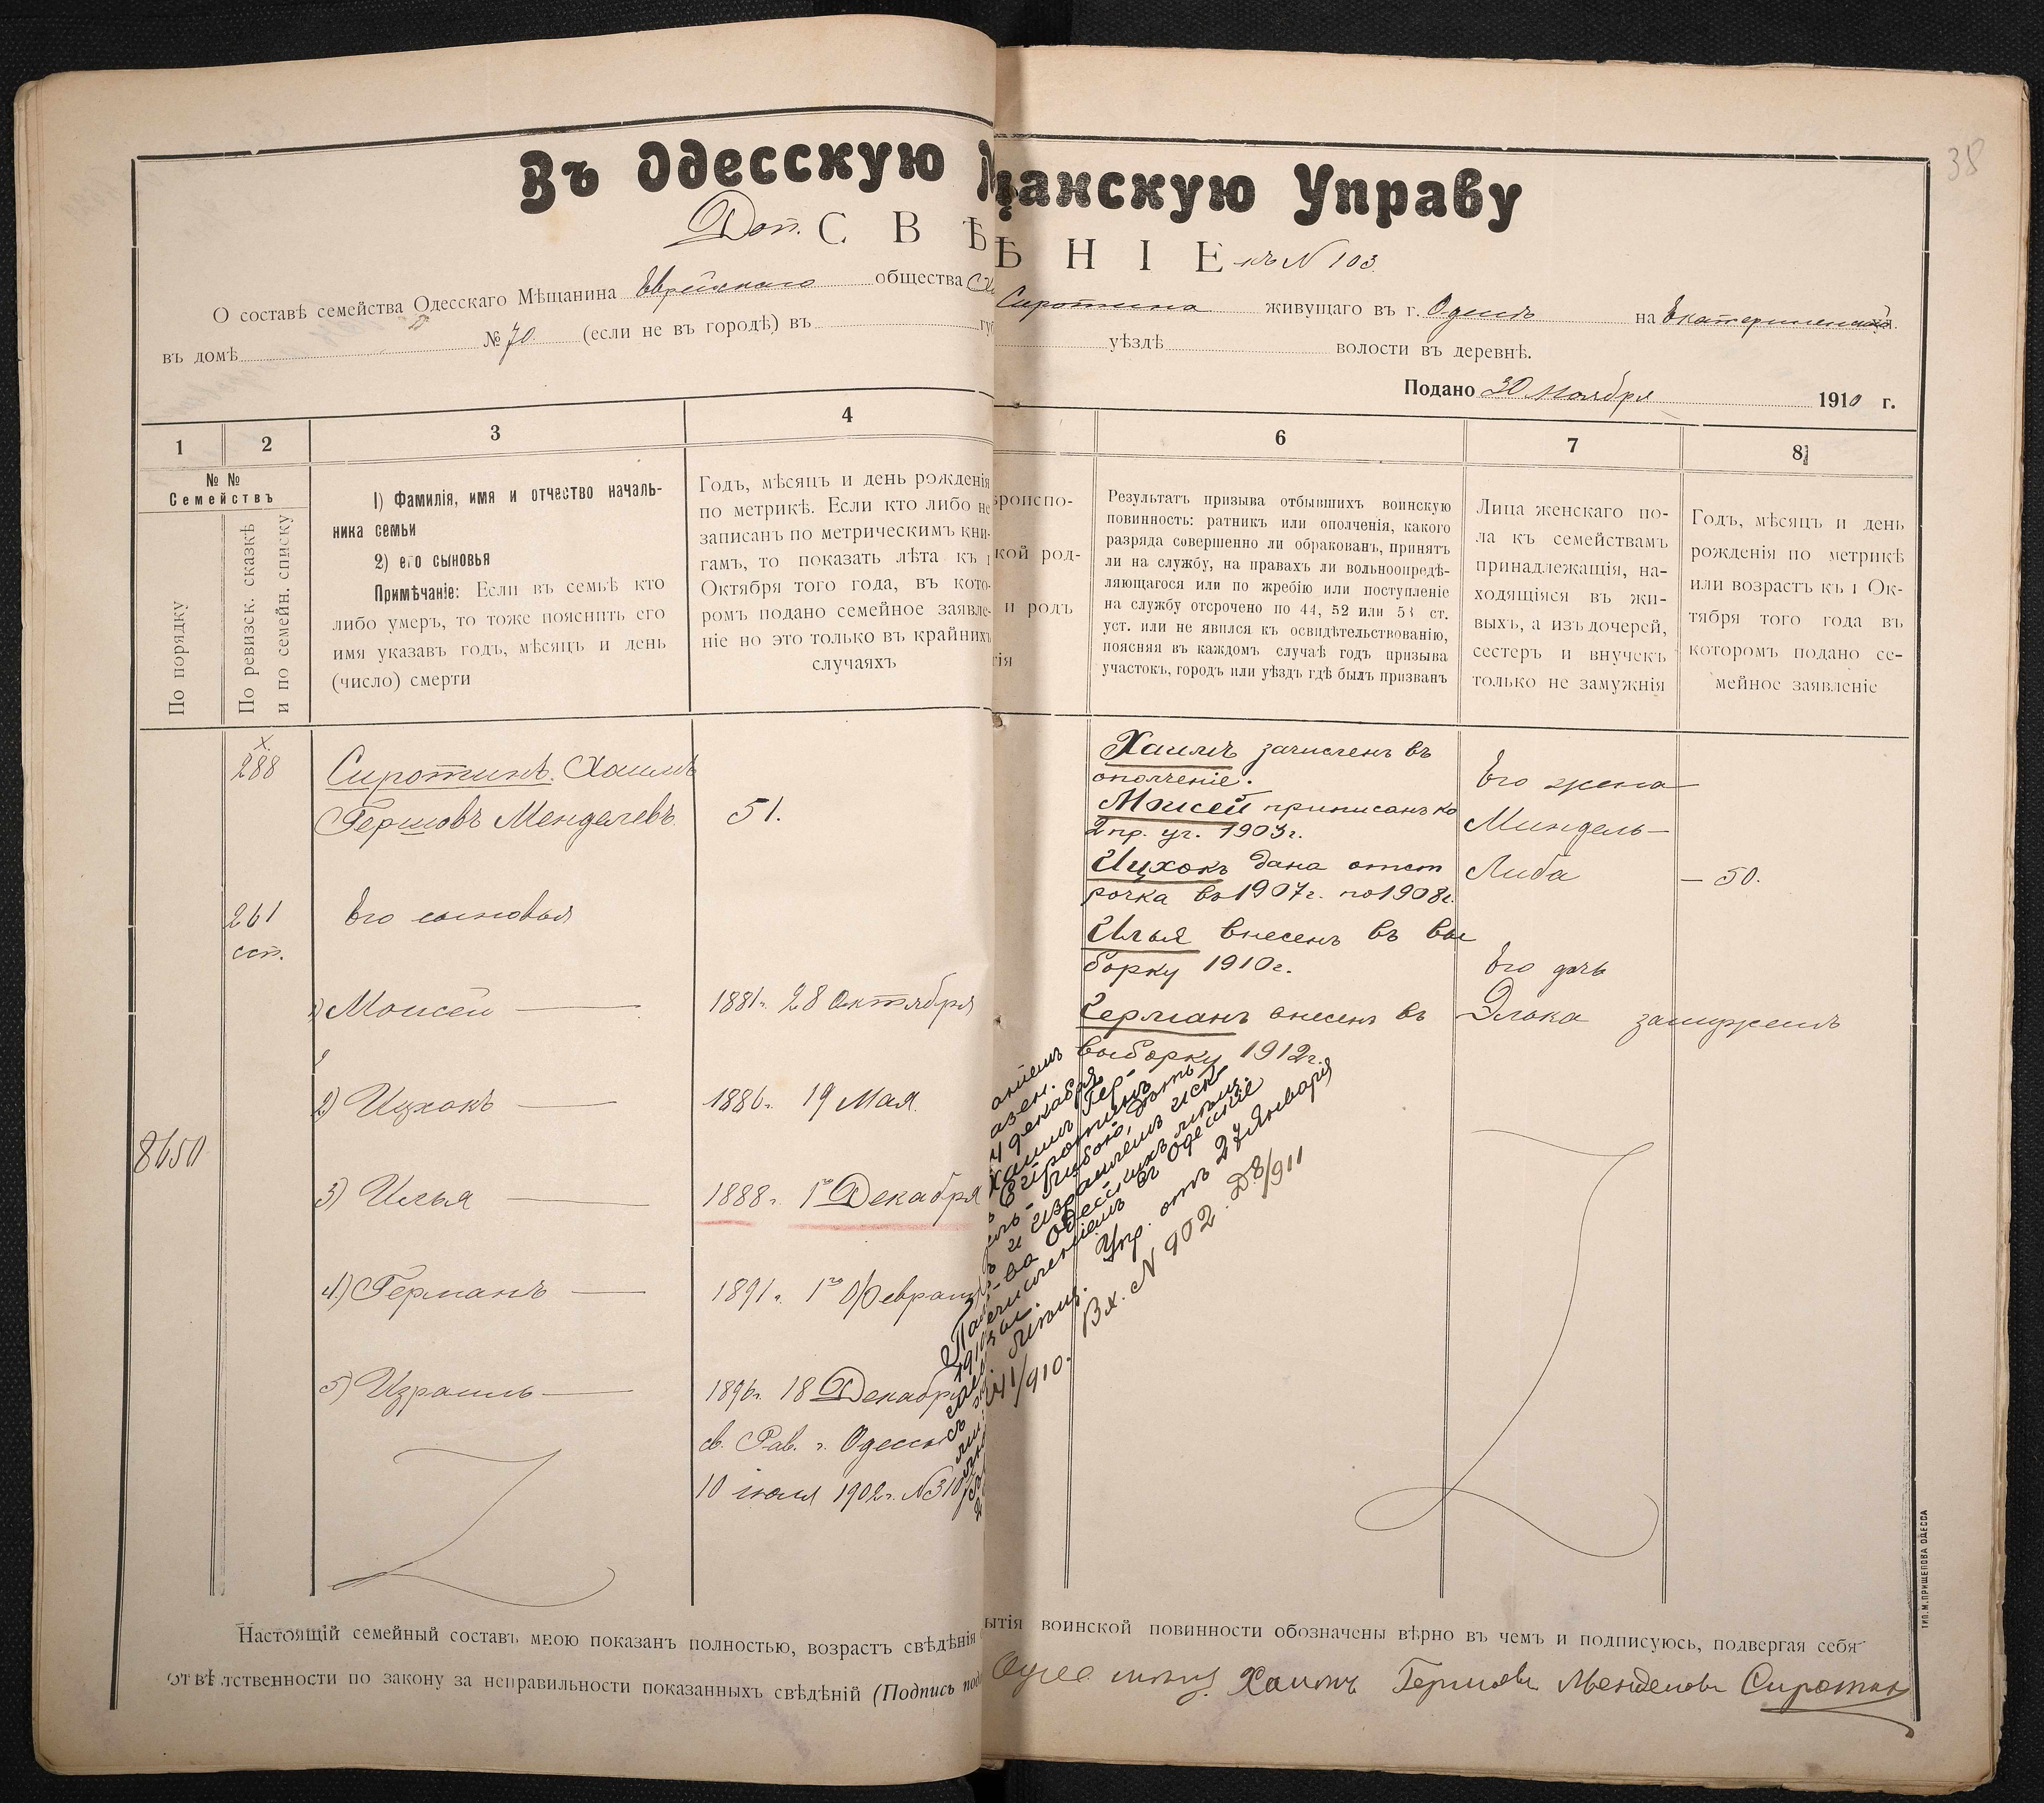 38
Въ Одесскую М щанскую Управу
Доп. С В Ѣ Ѣ Н І Е къ N 103
О составѣ семейства Одесскаго Мѣщанина Еврейскаго общества Сиротина живущаго въ г. Одессѣ на Екатерининской ул.
въ домѣ № 70 (если не въ городѣ) въ гу уѣздѣ волости въ деревнѣ.
Подано 30 Ноября 1910 г.
1 2 3 4 6 7 8
№ №
Семействъ
По порядку
По ревизск. сказкѣ
и по семейн. списку
1) Фамилія, имя и отчество началь-
ника семьи
2) его сыновья
Примѣчаніе: Если въ семьѣ кто
либо умеръ, то тоже пояснить его
имя указавъ годъ, мѣсяцъ и день
(число) смерти
Годъ, мѣсяцъ и день рожденія
по метрикѣ. Если кто либо не
записанъ по метрическимъ кни-
гамъ, то показать лѣта къ 1
Октября того года, въ кото-
ромъ подано семейное заявле-
ніе но это только въ крайнихъ
случаяхъ
вроиспо-
кой род-
и родъ
тія
Результатъ призыва отбывшихъ воинскую
повинность: ратникъ или ополченія, какого
разряда совершенно ли обракованъ, принятъ
ли на службу, на правахъ ли вольноопредѣ-
ляющагося или по жребію или поступленіе
на службу отсрочено по 44, 52 или 53 ст.
уст. или не явился къ освидѣтельствованію,
поясняя въ каждомъ случаѣ годъ призыва
участокъ, городъ или уѣздъ гдѣ былъ призванъ
Лица женскаго по-
ла къ семействамъ
принадлежащія, на-
ходящіяся въ жи-
выхъ, а изъ дочерей,
сестеръ и внучекъ
только не замужнія
Годъ, мѣсяцъ и день
рожденія по метрикѣ
или возрастъ къ 1 Ок-
тября того года въ
которомъ подано се-
мейное заявленіе
8650
x
288
261
ст.
Сиротинъ. Хаимъ
Гершовъ Менделевъ
51.
Его сыновья
1) Моисей
1881 г. 28 Октября
2) Ицхокъ
1886 г. 19 Мая.
3) Илья
1888 г. 1го Декабря
4) Германъ
1891 г. 1го Февраля
5) Израиль
1896 г. 18 Декабря
св. Рав. г. Одессы
10 іюля 1902 г. N 310
Хаимъ зачисленъ въ
ополченіе.
Моисей приписанъ ко
2 пр. уч. 1903 г.
Ицхокъ дана отст
рочка въ 1907 г. по 1908 г.
Илья внесенъ въ вы
борку 1910 г.
Германъ внесенъ въ
выборку 1912 г.
Его жена
Миндель-
Либа
- 50.
Его дочь
Элька замужемъ
Упр. отъ 27 Января
Вх. N 902. Д 8/911
41/910.
Настоящій семейный составъ мною показанъ полностью, возрастъ свѣдѣнія ытія воинской повинности обозначены вѣрно въ чемъ и подписуюсь, подвергая себя
отвѣтственности по закону за неправильности показанныхъ свѣдѣній (Подпись под
Хаимъ Гершовъ Менделевъ Сиротинъ
ТИП. М. ПРИЩЕПОВА ОДЕССА